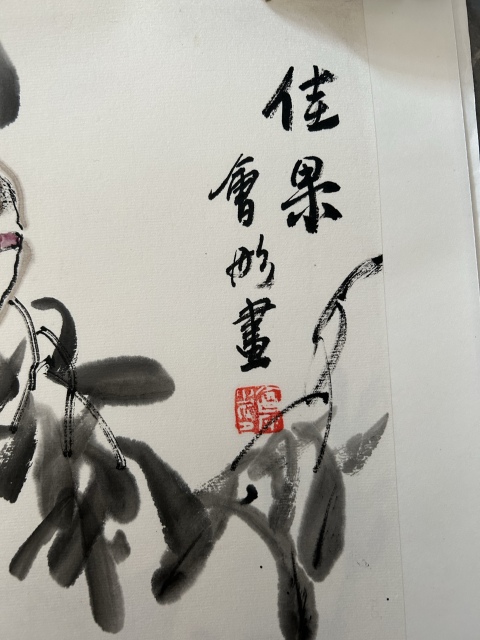 佳果
會彤畫